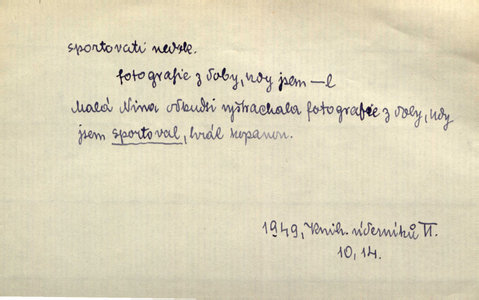 sportovati nedok.
fotografie z doby, kdy jsem —l
Malá Nina odkudsi vyštrachala fotografie z doby, kdy
jsem sportoval, hrál kopanou.
1949, Knih. úderníků II.
10, 14.